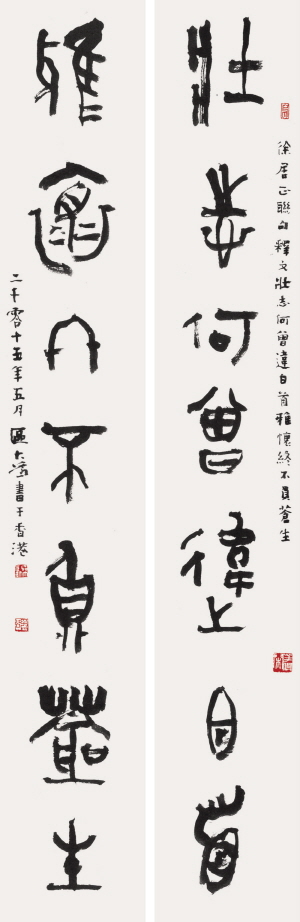 壯志何曾違白首
徐居正聯句釋文壯志何曾違白首雅懷終不負蒼生
雅懷終不負蒼生
二千零十五年五月區大為書于香港